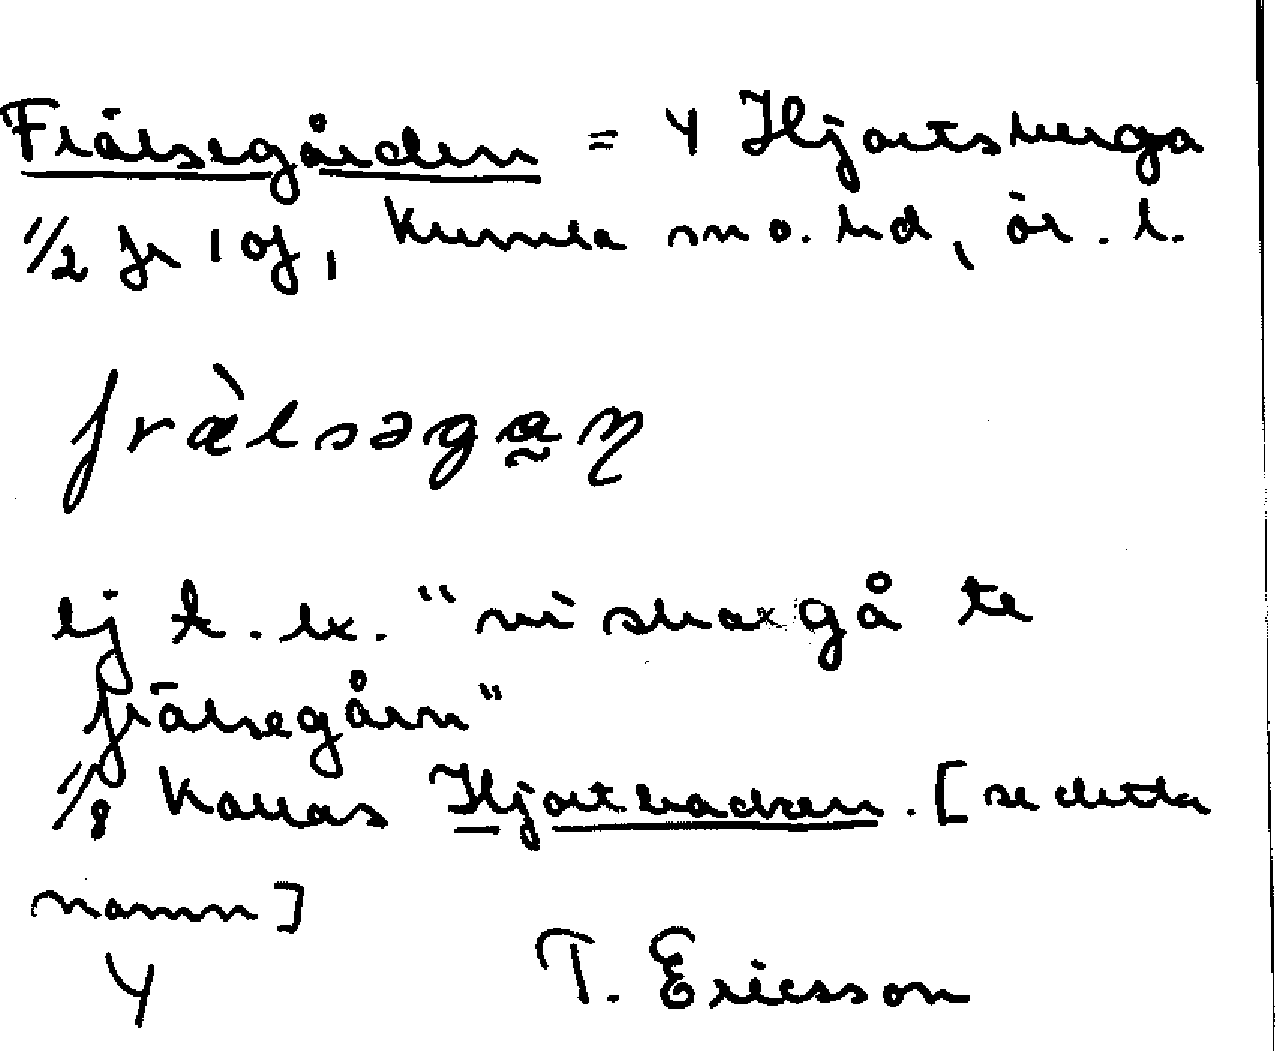 Frälsegården = 4 Hjortsberga
1/2 fr 1 of, Kumla sn o. hd, ör. l.
fràlsəga̰n
ej t. ex. "vi ska gå te
frälsegårn"
1/8 kallas Hjortbacken. [se detta
namn]
4 T. Ericsson